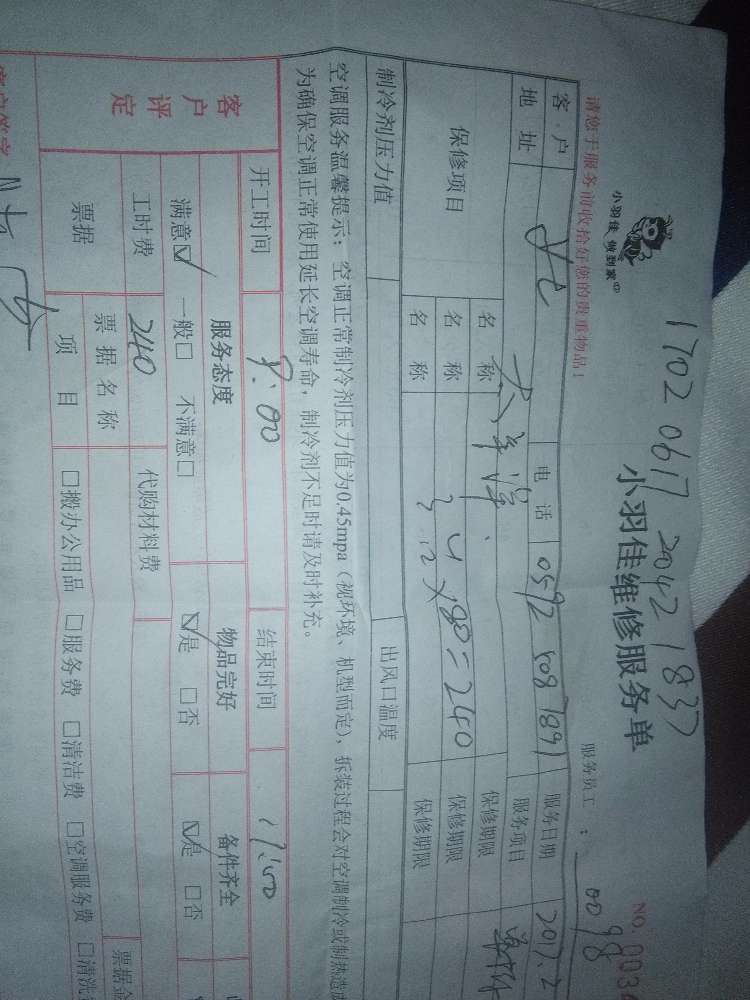 1702 0617 2042 1837
小羽佳 做到家
小羽佳维修服务单
NO. 003
请您于服务前收拾好您的贵重物品!
服务员工: 0098
客户 电话 0592 5087891 服务日期 2017.2
地址 服务项目
保修项目 名称 保修期限
名称 4×80=240 保修期限
名称 保修期限
制冷剂压力值 出风口温度
空调服务温馨提示:空调正常制冷剂压力值为0.45mpa(视环境、机型而定),拆装过程会对空调制冷或制热造成
为确保空调正常使用延长空调寿命,制冷剂不足时请及时补充。
开工时间 8:00 结束时间
客户评定 服务态度 物品完好 备件齐全
满意☑ 一般□ 不满意□ ☑是 □否 ☑是 □否
工时费 240 代购材料费
票据 票据名称 票据金
项目 □搬办公用品 □服务费 □清洁费 □空调服务费 □清洗
客户签字